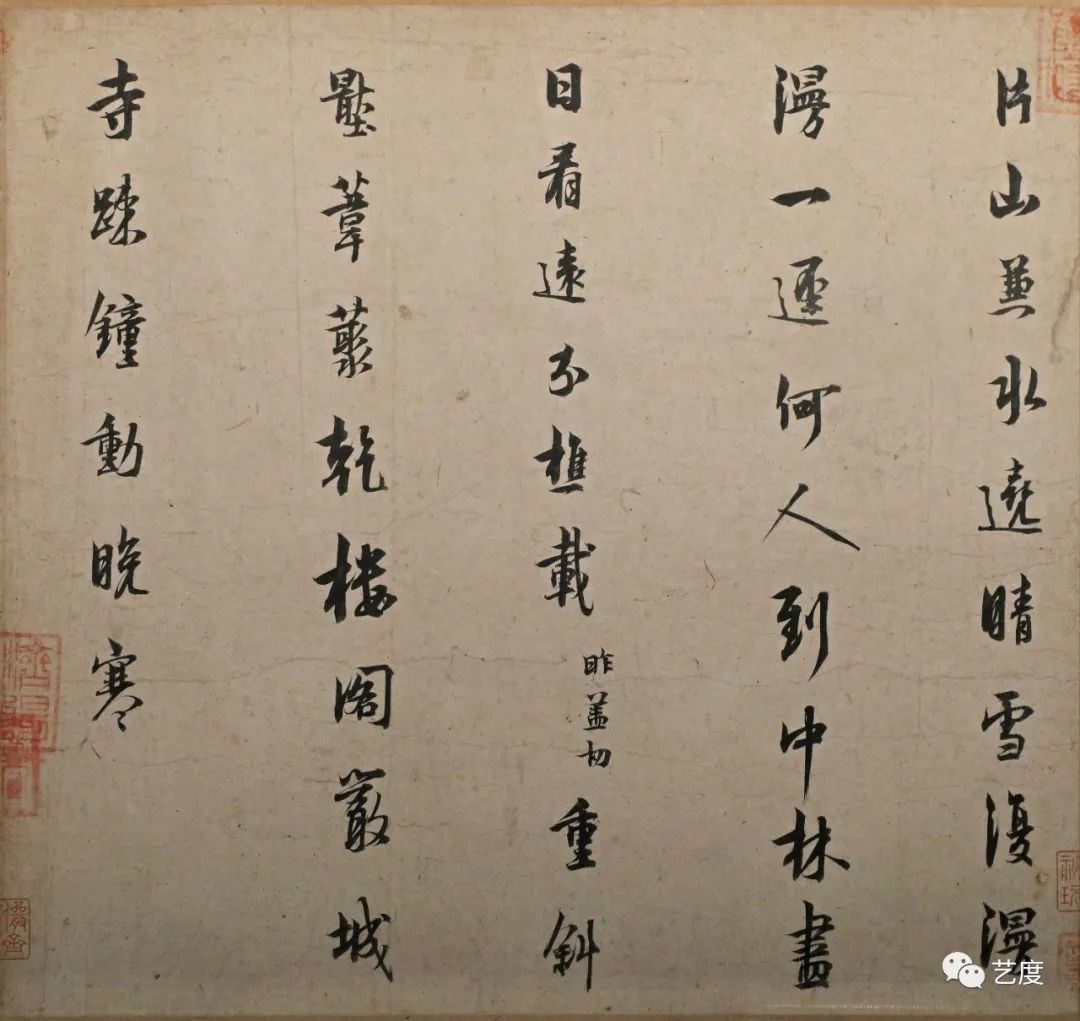 片山兼水遶晴雪復漫
漫一逕何人到中林盡
日看遠分樵載昨盖切重斜
壓葦藂乾楼阁嚴城
寺踈鐘動晚寒
艺度